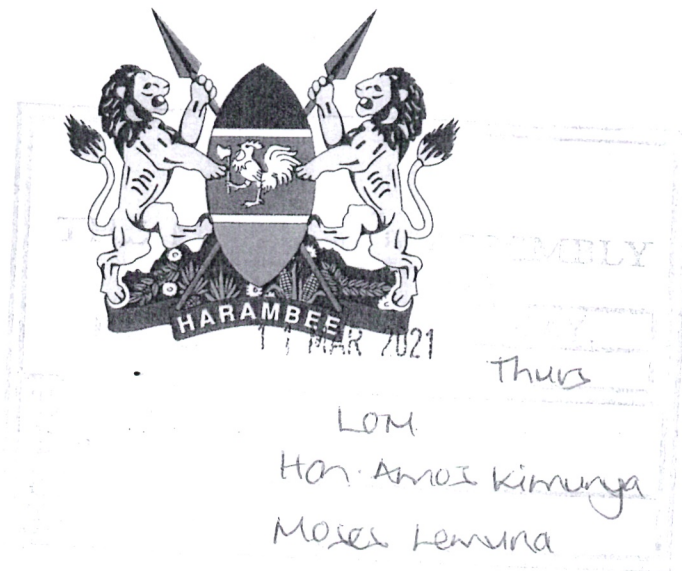 HARAMBEE
MAR 2021
Thurs
LOM
Hon. Amos Kimunya
Moses Lemuna